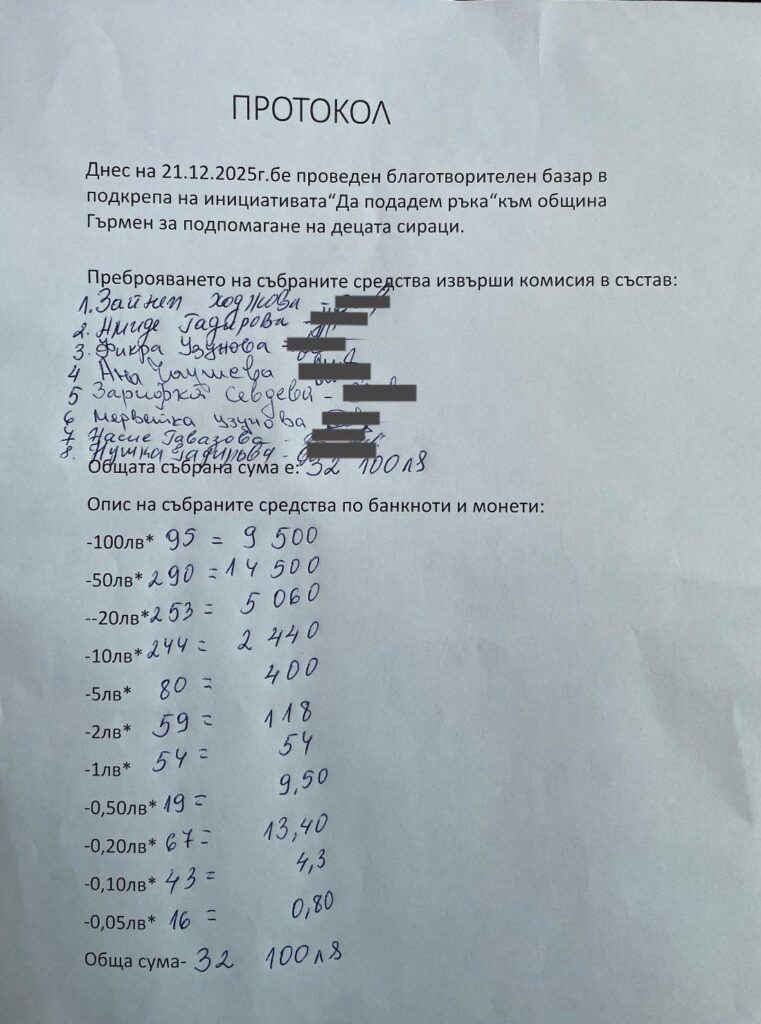 ПРОТОКОЛ
Днес на 21.12.2025г.бе проведен благотворителен базар в
подкрепа на инициативата“Да подадем ръка“към община
Гърмен за подпомагане на децата сираци.
Преброяването на събраните средства извърши комисия в състав:
1. Зайнеп Ходжова -
2. Амиде Гадирова -
3. Фикра Узунова -
4 Ана Чаушева
5 Севдева -
6 Мерветка Узунова
7 Насие Гавазова -
8. Гадирова -
Общата събрана сума е: 32 100лв
Опис на събраните средства по банкноти и монети:
-100лв* 95 = 9 500
-50лв* 290 = 14 500
--20лв* 253 = 5 060
-10лв* 244 = 2 440
-5лв* 80 = 400
-2лв* 59 = 118
-1лв* 54 = 54
-0,50лв* 19 = 9,50
-0,20лв* 67 = 13,40
-0,10лв* 43 = 4,3
-0,05лв* 16 = 0,80
Обща сума- 32 100лв